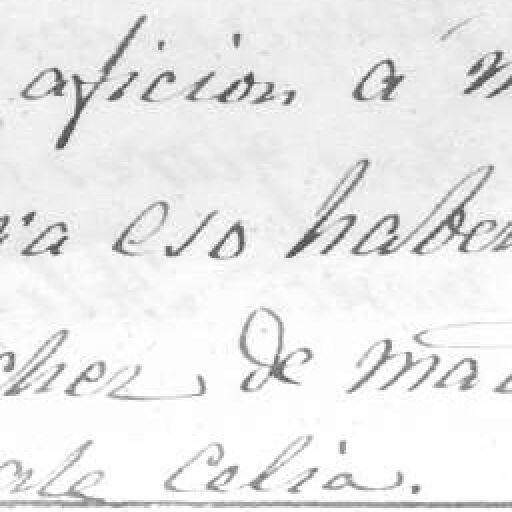 aficion á m
ra eso haber
cher de ma
arle Celia.